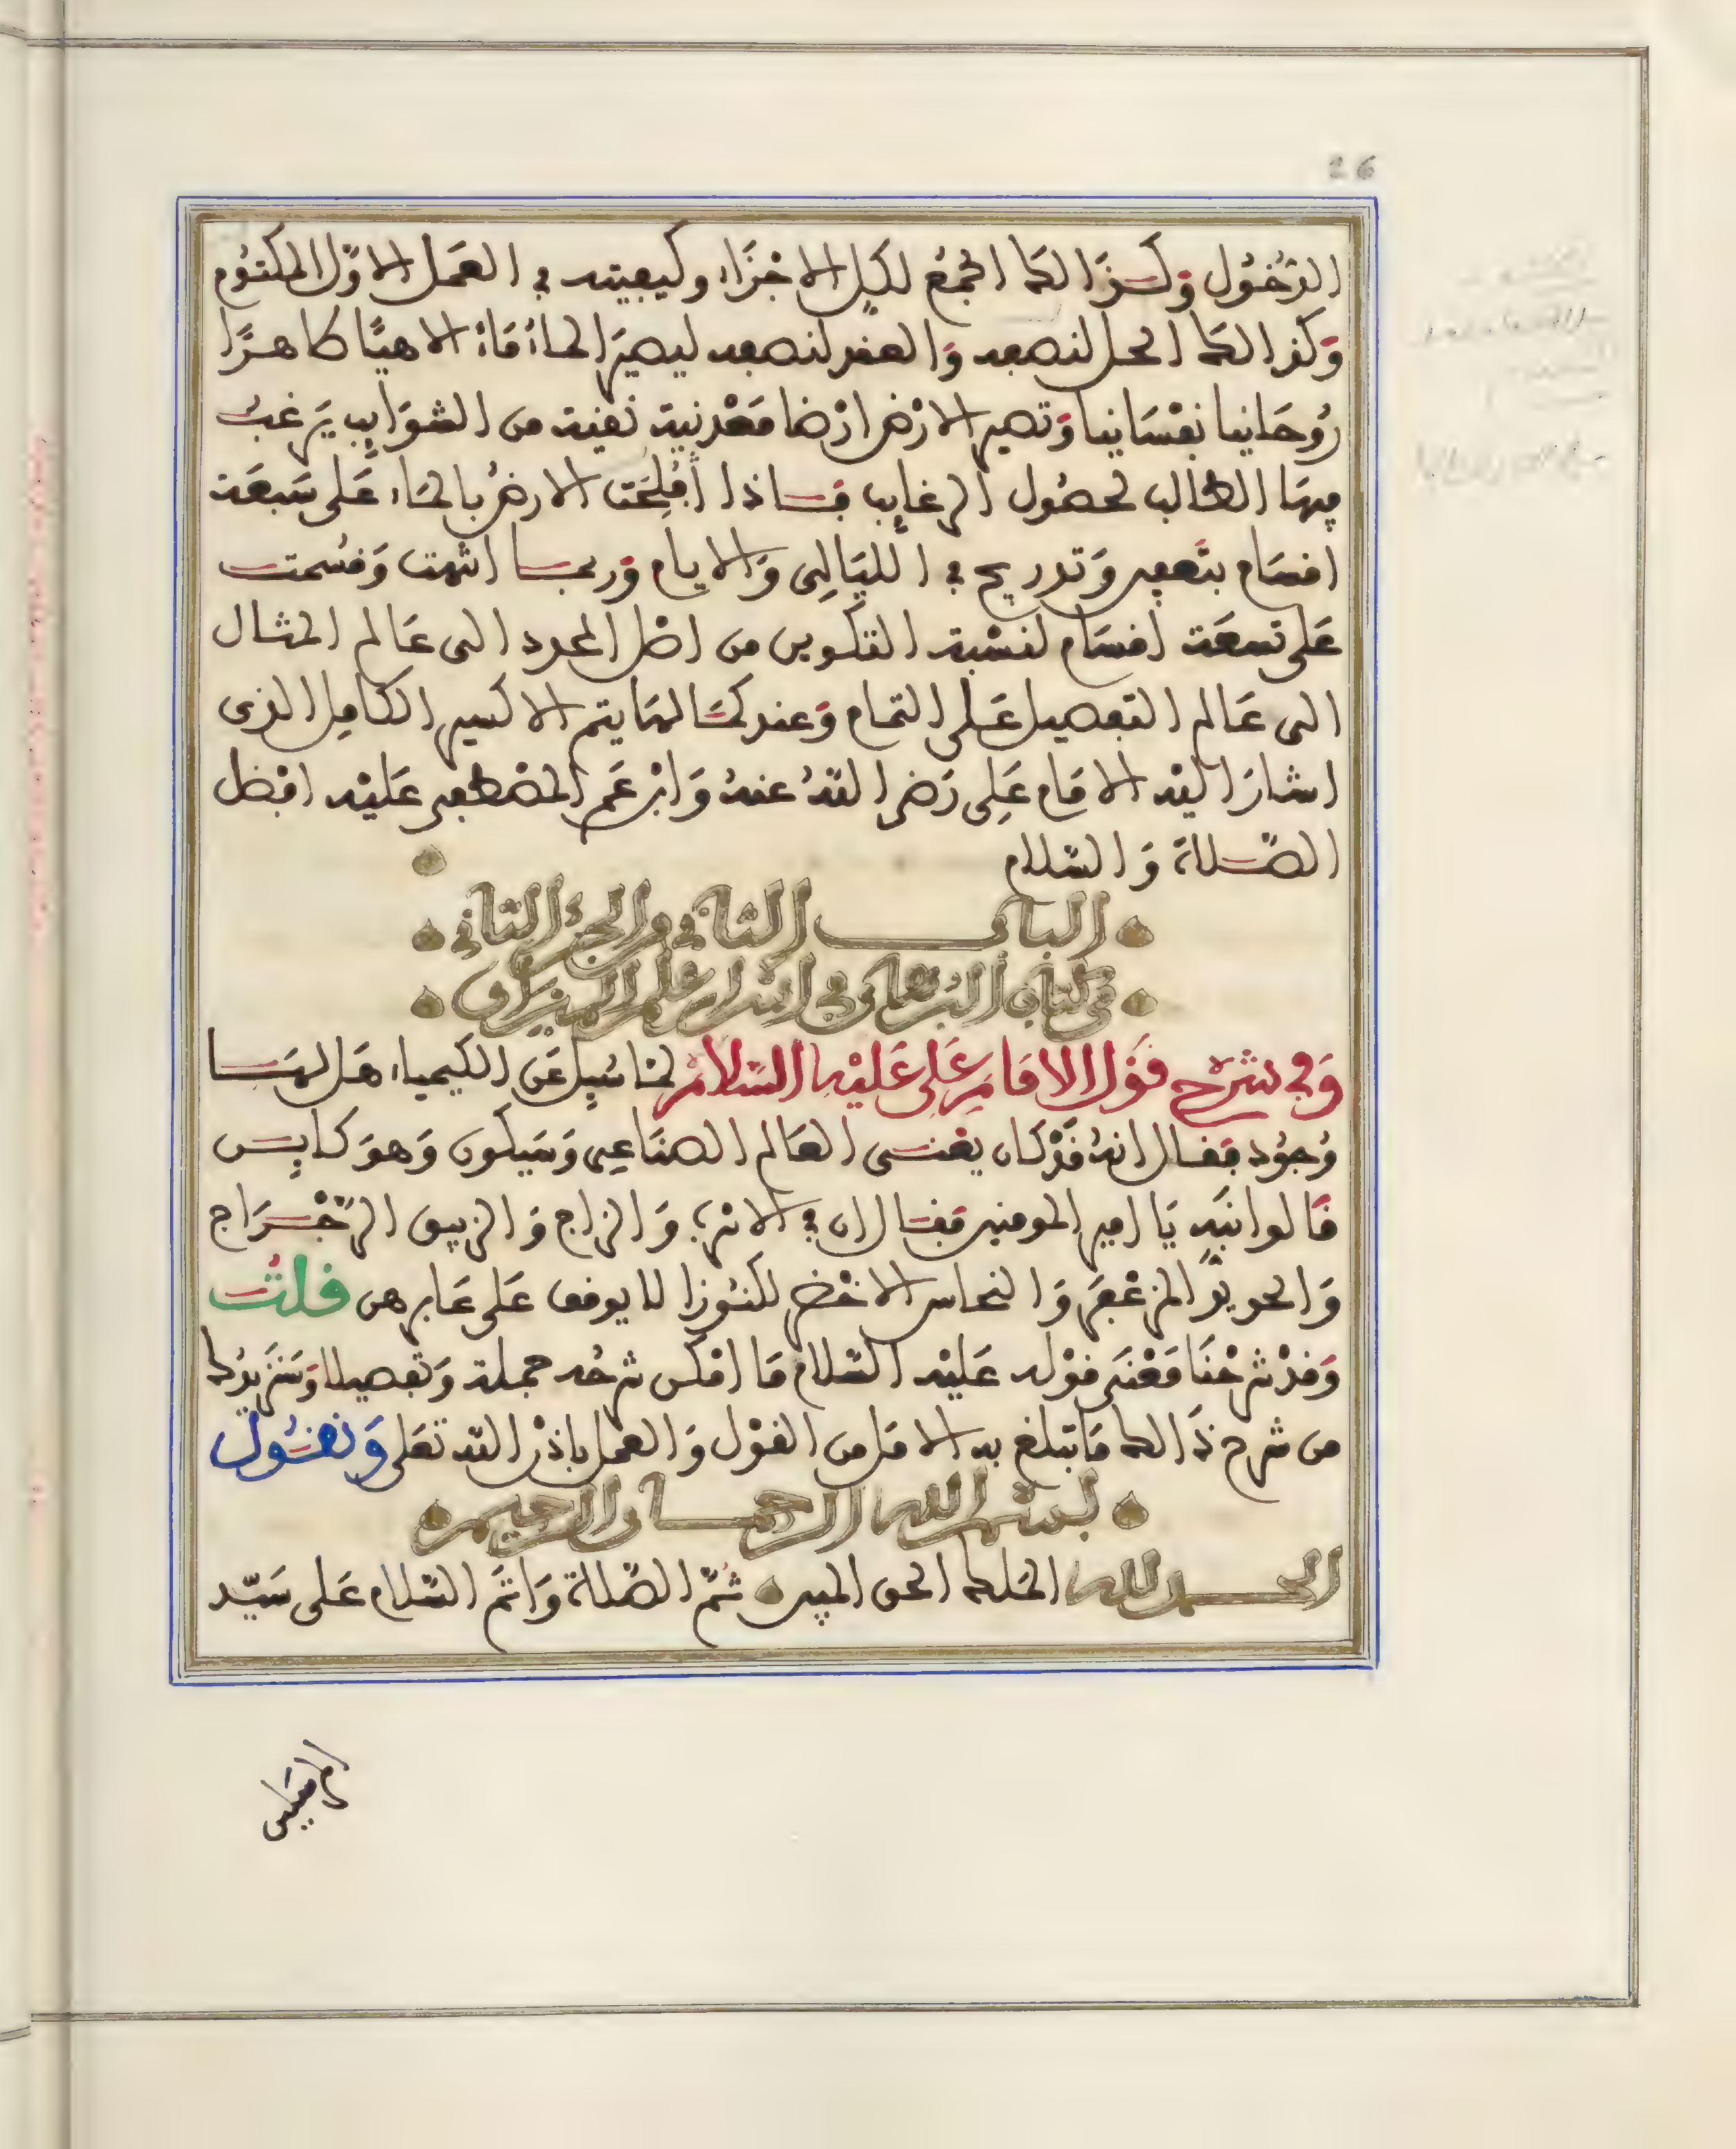 26
الدّخُول وَكذالك الجمْعُ لكلِ الاجْزَاء وكيفيته في العَمل الاوّل المكتوُم
وَكذالك الحل لتصعد وَالعقد لتصعد ليصيرَ الماءُ مَاءً الاهيًّا طاهرًا
رُوحَانيا نفْسَانيا وَتصير الارْض ارْضا مَعْدنية نقية من الشوَايِب يَرغبُ
فيهَا الطالب لحصُول الرغايِب فاذا أُفْلِحَت الارضُ بالمَاء عَلى سَبعَة
اقسَام بتَعفِين وَتدريج في الليَالِى وَالايام وَربما انتهت وَقسُمت
عَلى تسعَة اقسَام لنسْبة التكوين من اصْل المحدد الى عَالم المثال
الى عَالم التفصيل عَلى التمام وَعند كمَالهَا يتم الاكسير الكامِل الذى
اشارَ اليْه الامَام عَلِى رَضى اللهُ عنهُ وَابْن عَم المصْطفى عَليْه افضْل
الصّلاة وَ السّلام
البابُ الثاني من الجزءِ الثاني
من كتاب البُرهان في اسْرار علم الميزان
وَفي شرْح قوْل الامَام عَلى عَليْه السّلام لمَا سُيِل عَن الكيمياء هَل لهَا
وُجوُد فقال انهُ قدْ كان يغنى العَالم الصنَاعِى وَسَيكون وَهوَ كايِن
قالوا نبّه يَا امير المومنين فقال ان في الاسْرُب وَ الزاج وَ الزيبق الرّجْرَاج
وَالحديد المزعْفَر وَ النحاس الاخْضر لكنُوزا لا يوقف عَلى غابرهن قلتُ
وَقدْ شرَحْنَا مَعْنَى قوْله عَليْه السّلام مَا امْكن شرحُه جملة وَتفصيلا وَسَنزيدُك
من شرح ذَالك مَا تبلغ به الامَل من القوْل وَ العمل باذنْ الله تعَلى وَنقُول
بسم الله الرحمان الرحيم
الحمد لله الملك الحق المبين ثمّ الصّلاة وَ اتمّ السّلام عَلى سَيّد